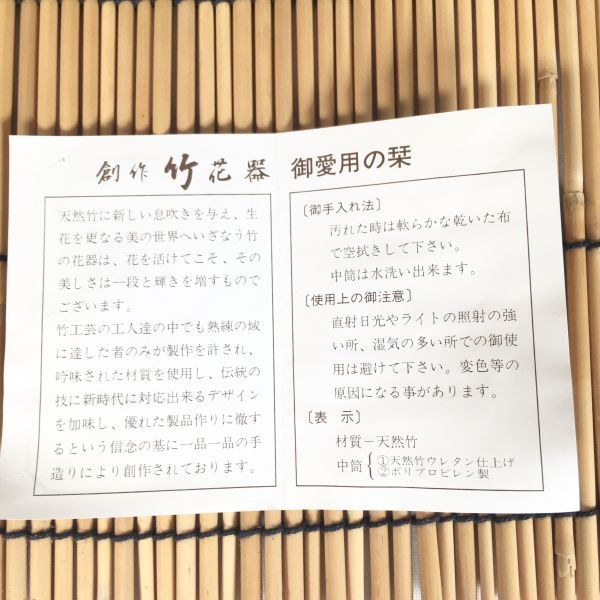 創作 竹 花 器
天然竹に新しい息吹きを与え、生
花を更なる美の世界へいざなう竹
の花器は、花を活けてこそ、その
美しさは一段と輝きを増すもので
ございます。
竹工芸の工人達の中でも熟練の域
に達した者のみが製作を許され、
吟味された材質を使用し、伝統の
技に新時代に対応出来るデザイン
を加味し、優れた製品作りに徹す
るという信念の基に一品一品の手
造りにより創作されております。
御愛用の栞
〔御手入れ法〕
汚れた時は軟らかな乾いた布
で空拭きして下さい。
中筒は水洗い出来ます。
〔使用上の御注意〕
直射日光やライトの照射の強
い所、湿気の多い所での御使
用は避けて下さい。変色等の
原因になる事があります。
〔表 示〕
材質−天然竹
中筒{①天然竹ウレタン仕上げ
②ポリプロピレン製